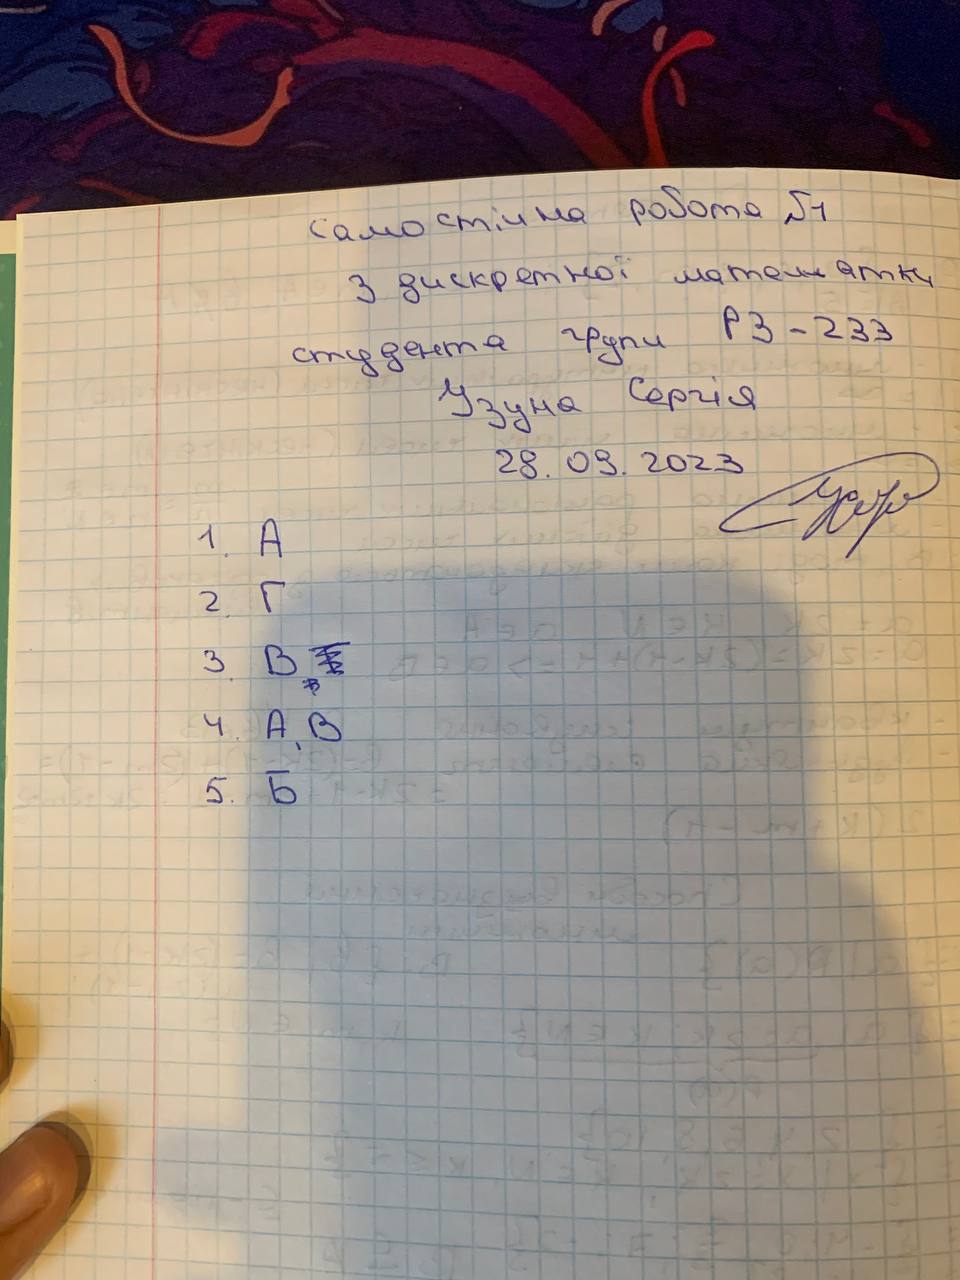 Самостійна робота №1
З дискретної математики
студента групи РЗ-233
Узуна Сергія
28.09.2023
1. А
2. Г
3. В
4. А, В
5. Б